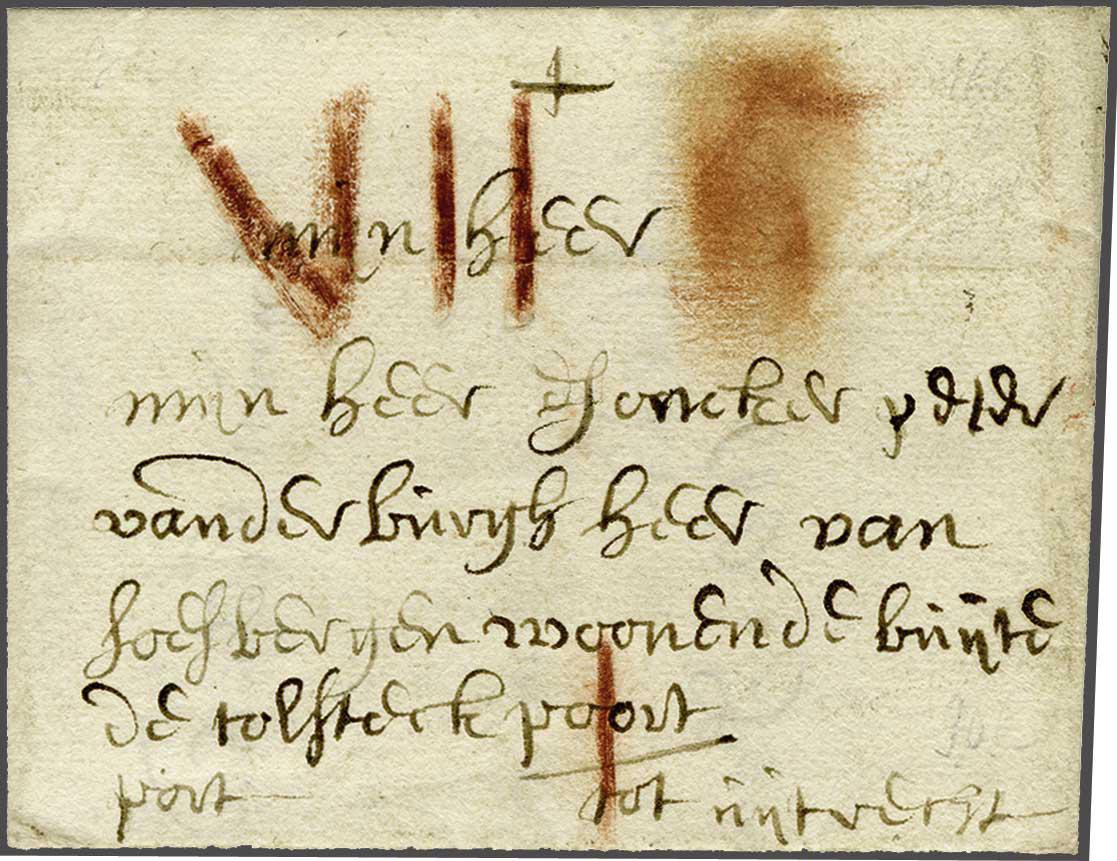 VII
mijn heer
mijn heer Joncker peter
vanderburgh heer van
hoechbergen woonende buÿte
de tolsteck poort
port tot üÿtrecht